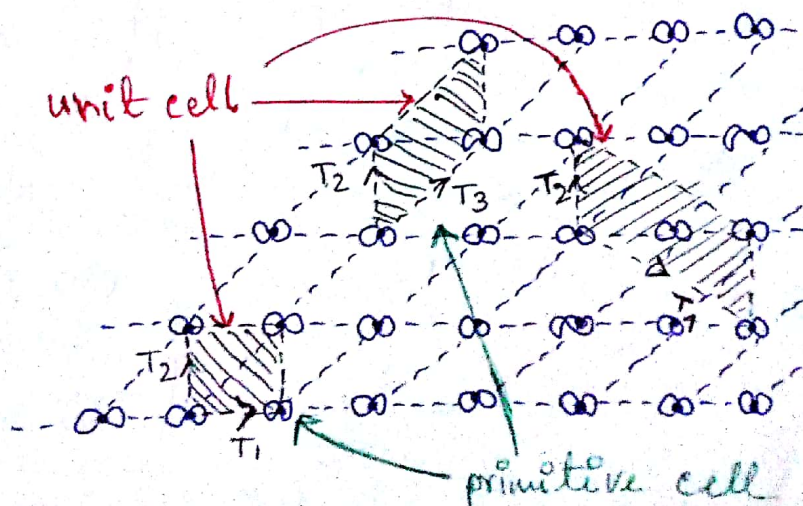 unit cell
T2
T3
T2
T2
T1
primitive cell